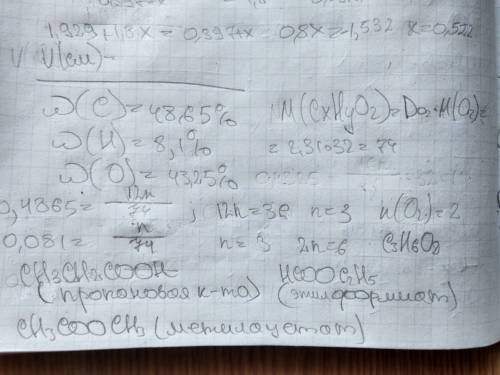 1,929+1,8x = 0,397+x   0,8x=-1,532   x=0,522
V V(см)-
ω(C)=48,65%   M(CxHyO2)=DO2·M(O2)=
ω(H)=8,1%   =2,31·32=74
ω(O)=43,25%
0,4865=12n/74 ; 12n=36   n=3   n(O2)=2
0,081=n/74   n=3   2n=6   C3H6O2
CH3CH2COOH   HCOOC2H5
(пропановая к-та)   (этилформиат)
CH3COOCH3 (метилацетат)